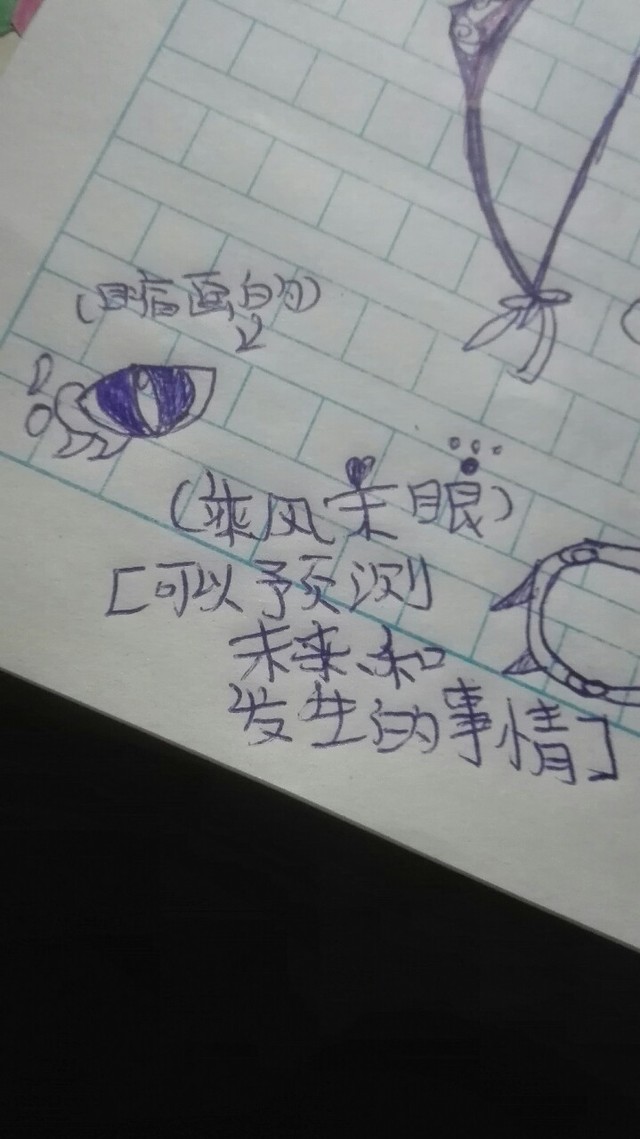 (瞎画的)
(乘风眼)
[可以予页测
未来、和
发生的事情]